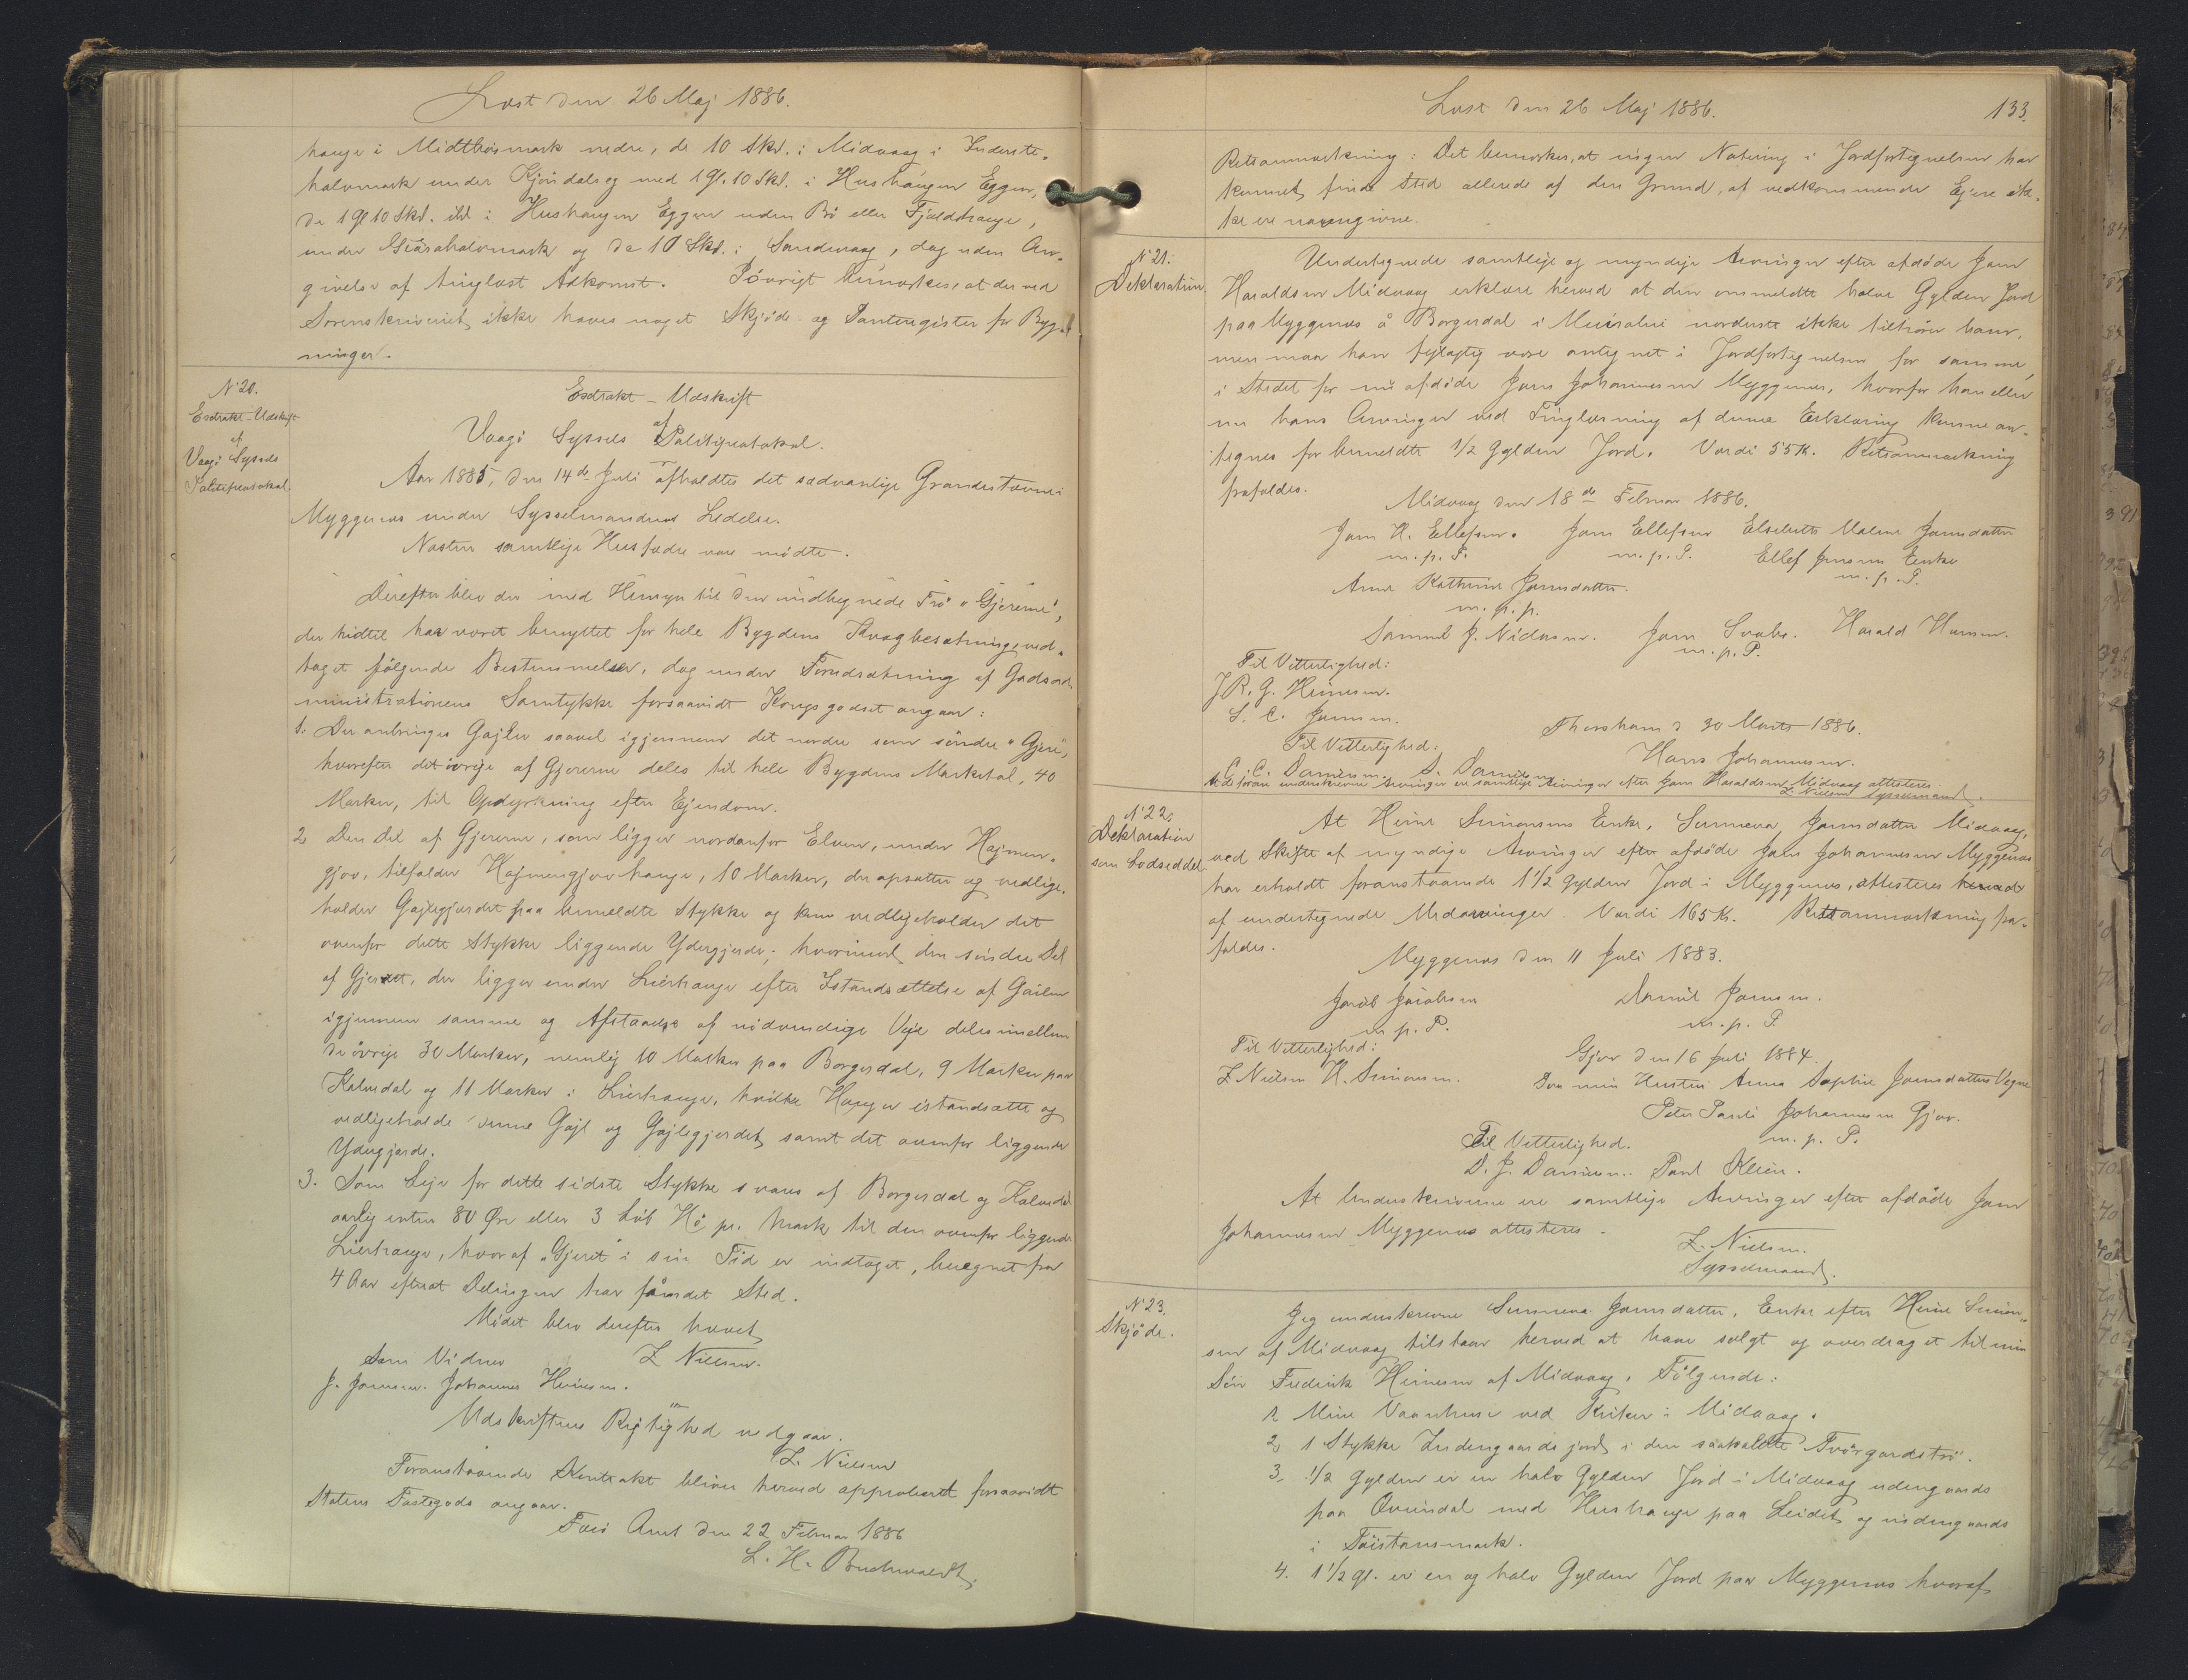 Læst den 26 Maj 1886.
hauge i Midtbøsmark nedre, de 10 Skd. i Midvaag i Inderste-
halvmark under Kjøndal og med 1 Gl. 10 Skd. i Hushaugen Eggen,
de 1 Gl 10 Skd. ibd i Hushaugen Eggen uden Bø eller Fjeldhauge,
under Giljarhalvmark og de 10 Skd. i Sandevaag, dog uden An-
givelse af tinglæst Adkomst. Iøvrigt bemærkes, at der ved
Sorenskriveriet ikke haves noget Skjøde- og Panteregister for Byg-
ninger.
N° 20.
Esdrakt-Udskrift
af
Vaagø Syssels
Politiprotokol.
Esdrakt-Udskrift
af
Vaagø Syssels Politiprotokol.
Aar 1885, den 14de Juli afholdtes det sædvanlige Grandestævne i
Myggenæs under Sysselmandens Ledelse.
Næsten samtlige Husfædre vare mødte.
Derefter blev der med Hensyn til den indhegnede Trø "Gjerene",
der hidtil har været benyttet for hele Bygdens Kvægbesætninge ved-
taget følgende Bestemmelser, dog under Forudsætning af Godsad-
ministrationens Samtykke forsaavidt Kongsgodset angaar:
1. Der anbringes Gajler saavel igjennem det nordre som søndre "Gjeri",
hvorefter det øvrige af Gjerene deles til hele Bygdens Marketal, 40
Marker, til Opdyrkning efter Ejendom.
2 Den Del af Gjerene, som ligger nordanfor Elven, under Hajmen-
gjov, tilfalder Hajmengjov hauge, 10 Marker, der opsætter og vedlige-
holder Gajlegjærdet paa bemeldte Stykke og kun vedligeholder det
ovenfor dette Stykke liggende Ydergjærde; hvorimod den søndre Del
af Gjeret, der ligger under Lierhauge efter Istandsættelse af Gailen
igjennem samme og Afstaaelse af nødvendige Veje deles imellem
de øvrige 30 Marker, nemlig 10 Marker paa Borgerdal, 9 Marker paa
Kalvedal og 11 Marker i Lierhauge, hvilke Hauger istandsætte og
vedligeholde denne Gajl og Gajlegjerdet samt det ovenfor liggende
Ydergjærde.
3. Som Leje for dette sidste Stykke svares af Borgerdal og Kalvedal
aarlig enten 80 Øre eller 3 Lób Hø pr. Mark til den ovenfor liggende
Lierhauge, hvoraf "Gjeret" i sin Tid er indtaget, beregnet fra
4 Aar efterat Delingen har fundet Sted.
Mødet blev derefter hævet
Som Vidner Z Nielsen.
J. Joensen. Johannes Heinesen.
Udskriftens Rigtighed vedgaar.
Z. Nielsen
Foranstaaende Kontrakt bliver herved approberet forsaavidt
Statens Fastegods angaar.
Færø Amt den 22 Februar 1886
L. H. Buchwaldt.
Læst den 26 Maj 1886.
133.
Retsanmærkning: Det bemærkes, at ingen Notering i Jordfortegnelsen har
kunnet finde Sted allerede af den Grund, at vedkommende Ejere ik-
ke ere navngivne.
N° 21.
Deklaration.
Undertegnede samtlige og myndige Arvinger efter afdøde Joen
Haraldsen Midvaag erklære herved at den ommeldte halve Gylden Jord
paa Myggenæs å Borgerdal i Muiralui norderste ikke tilhører ham,
men maa han fejlagtig være antegnet i Jordfortegnelsen for samme,
i Stedet for nu afdøde Joen Johannesen Myggenæs, hvorfor han eller
nu hans Arvinger ved Tinglæsning af denne Erklæring kunne an-
tegnes for bemeldte 1/2 Gylden Jord. Værdi 55 K. Retsanmærkning
frafaldes.
Midvaag den 18de Februar 1886.
Joen H. Ellefsen. Joen Ellefsen Elsebeth Malene Joensdatter
m.p.P. m.p.P. Ellef Jensens Enke
m.p.P.
Anne Kathrine Joensdatter.
m.p.p.
Samuel J. Niclasen. Joen Svabo. Harald Hansen.
m.p.P.
Til Vitterlighed:
J. R. G. Heinesen.
S. C. Joensen.
Thorshavn d 30 Marts 1886.
Til Vitterlighed: Hans Johannesen.
C. C. Danielsen. S. Danielsen
At de foran underskrevne Arvinger er samtlige Arvinger efter Joen Haraldsen Midvaag attesteres
Z. Nielsen Sysselmand.
N° 22.
Deklaration
som Lodseddel.
At Heine Simonsens Enke, Sunneva Joensdatter Midvaag,
ved Skifte af myndige Arvinger efter afdøde Joen Johannesen Myggenæs
har erholdt foranstaaende 1 1/2 Gylden Jord i Myggenæs, attesteres herved
af undertegnede Medarvinger. Værdi 165 K. Retsanmærkning fra-
faldes.
Myggenæs den 11 Juli 1883.
Jacob Jacobsen Daniel Joensen.
m.p.P. m.p.P.
Til Vitterlighed:
Z. Nielsen H. Simonsen.
Gjov den 16 Juli 1884.
Paa min Hustru Anna Sophie Joensdatters Vegne
Peter Pauli Johannesen Gjov.
m.p.P.
Til Vitterlighed.
D. J. Danielsen. Poul Klein.
At Underskriverne ere samtlige Arvinger efter afdøde Joen
Johannesen Myggenæs attesteres.
Z. Nielsen.
Sysselmand.
N° 23.
Skjøde.
Jeg underskrevne Sunneva Joensdatter, Enke efter Heine Simon-
sen af Midvaag tilstaar herved at have solgt og overdraget til min
Søn Frederik Heinesen af Midvaag, Følgende:
1. Mine Vaanhuse ved Kirken i Midvaag.
2. 1 Stykke Indengaardsjord i den saakaldte Tvørgardstrø.
3. 1/2 Gylden er en halv Gylden Jord i Midvaag udengaards
paa Ovendal med Hushauge paa Leidet og indengaards
i Tøistansmark.
4. 1 1/2 Gl. er en og halv Gylden Jord paa Myggenæs hvoraf